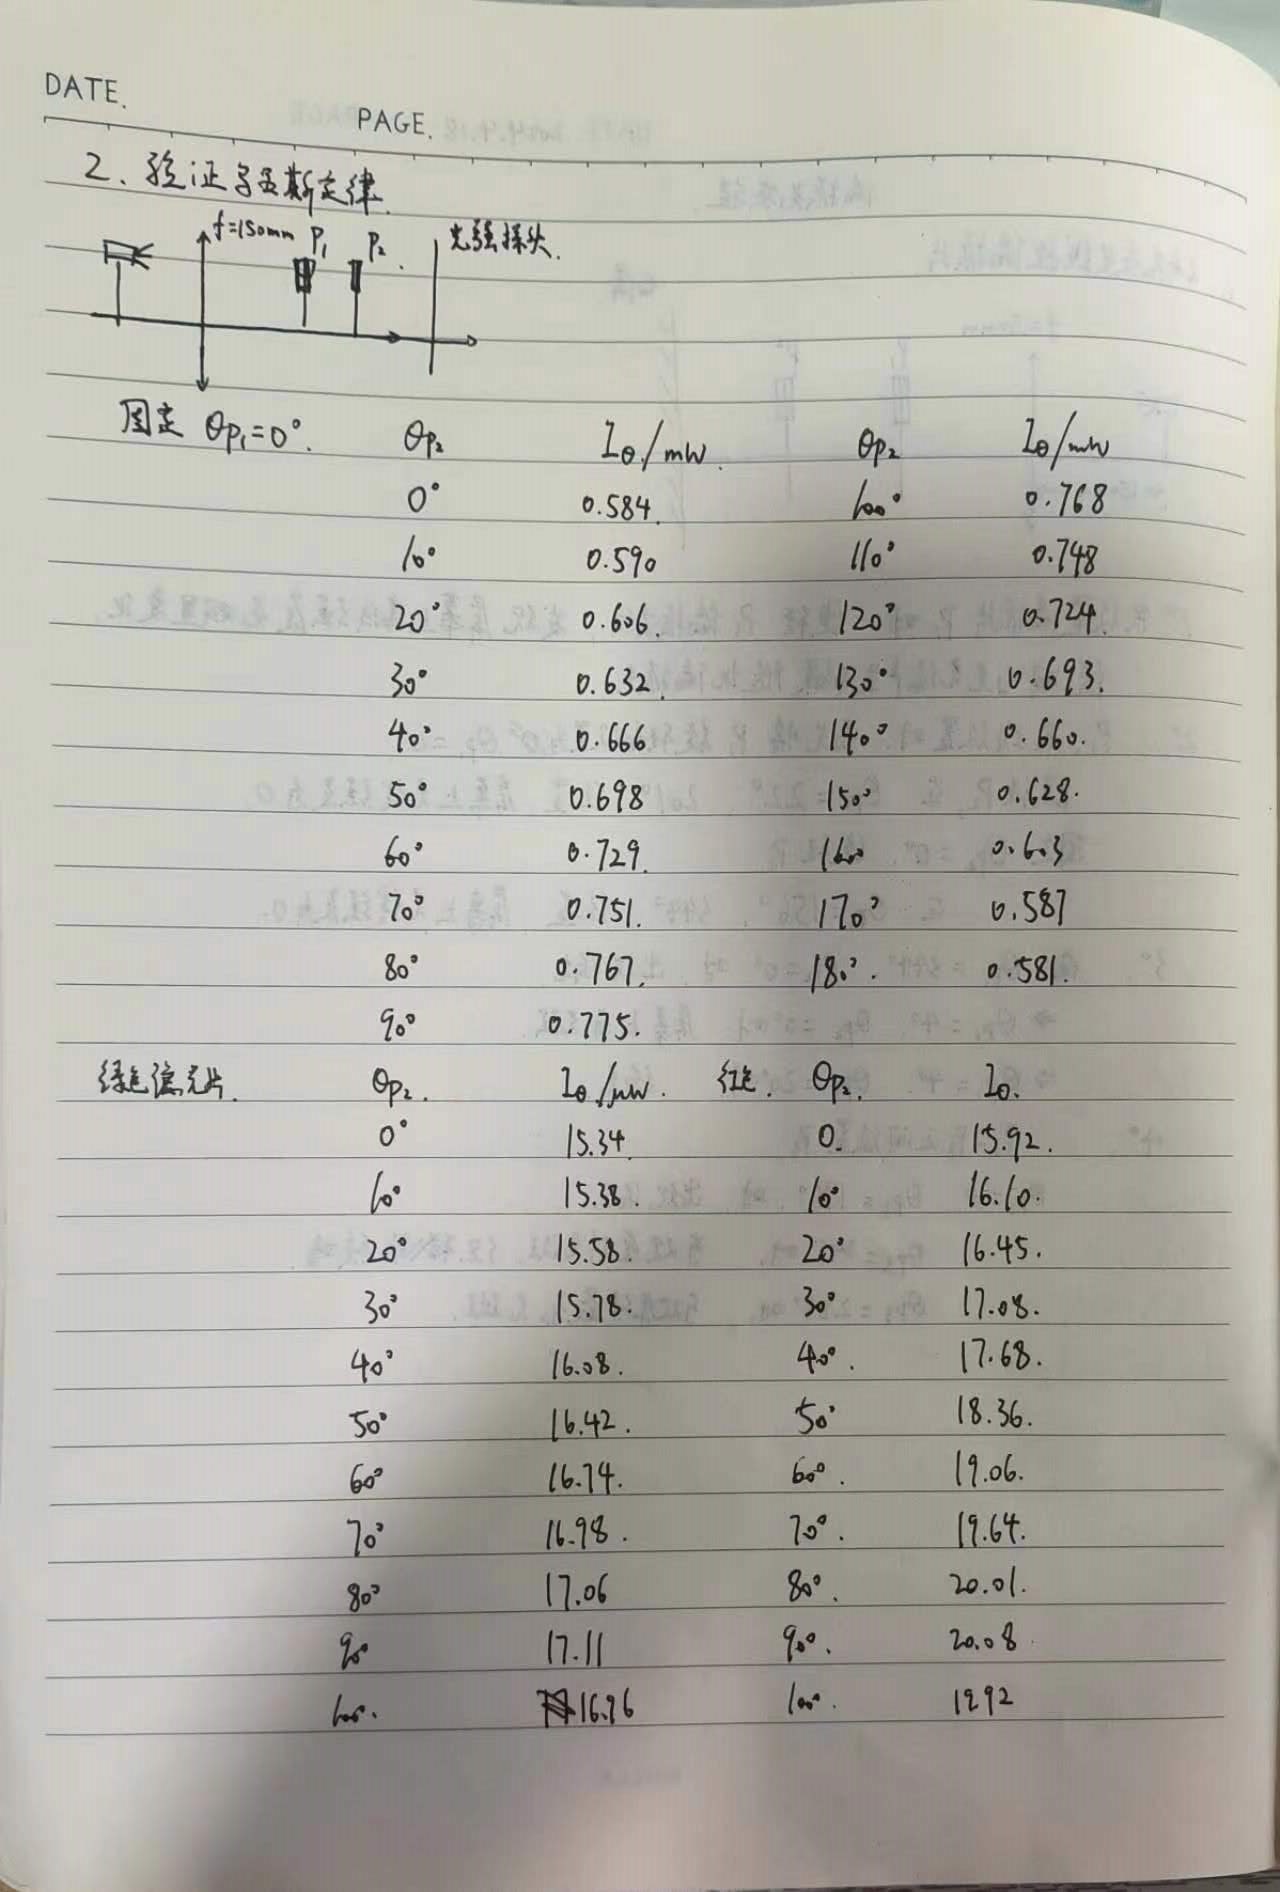 DATE.
PAGE.
2、验证马吕斯定律.
f=150mm P₁ P₂. 光强探头.
固定 θp₁=0°. θp₂ Iθ/mW. θp₂ Iθ/mW
0° 0.584. 100° 0.768
10° 0.590 110° 0.748
20° 0.606. 120° 0.724.
30° 0.632. 130° 0.693.
40° 0.666 140° 0.660.
50° 0.698 150° 0.628.
60° 0.729. 160° 0.603
70° 0.751. 170° 0.587
80° 0.767. 180°. 0.581.
90° 0.775.
绿色滤光片. θp₂. Iθ/μW. 红色. θp₂. Iθ.
0° 15.34. 0. 15.92.
10° 15.38. 10° 16.10.
20° 15.58. 20° 16.45.
30° 15.78. 30° 17.08.
40° 16.08. 40°. 17.68.
50° 16.42. 50° 18.36.
60° 16.74. 60°. 19.06.
70° 16.98. 70°. 19.64.
80° 17.06 80°. 20.01.
90° 17.11 90°. 20.08
100. 16.96 100°. 19.92